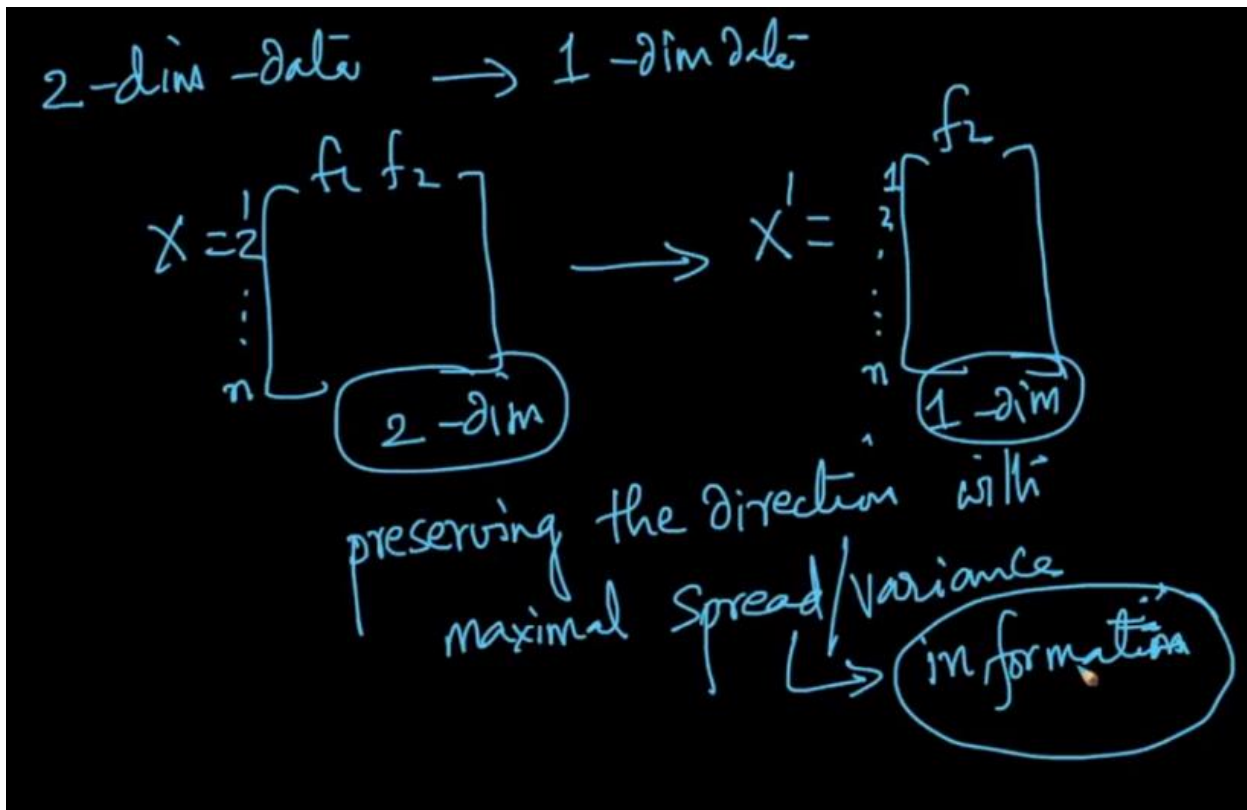 2-dim-data → 1-dim data
f1 f2
f2
X = 1
2
⋮
n
X' = 1
2
⋮
n
2-dim
1-dim
preserving the direction with
maximal spread/variance
information